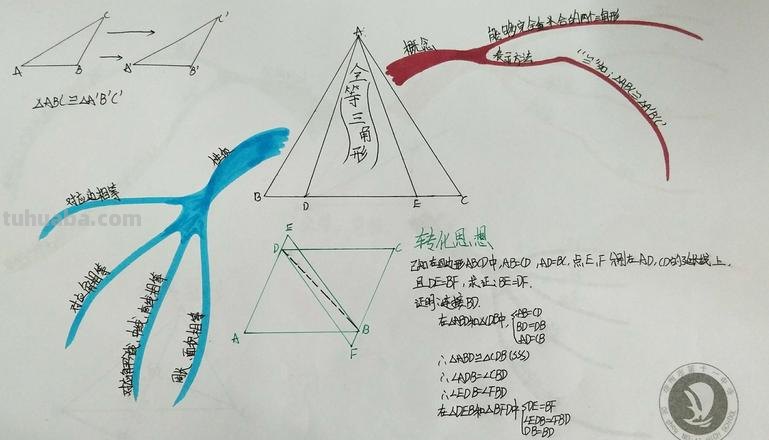 C
C'
A
B
A'
B'
△ABC≌△A'B'C'
A
全等三角形
B
D
E
C
概念
能够完全重合的两个三角形
表示方法
"≌"如:△ABC≌△A'B'C'
性质
对应边相等
对应角相等
对应角平分线、中线、高线相等
周长、面积相等
tuhuaba.com
E
D
C
A
B
F
转化思想
已知在四边形ABCD中,AB=CD,AD=BC,点E,F分别在AD,CD的延长线上,
且DE=BF,求证:BE=DF.
证明:连接BD.
在△ABD和△CDB中,
AB=CD
BD=DB
AD=CB
∴△ABD≌△CDB(SSS)
∴∠ADB=∠CBD
∴∠EDB=∠FBD
在△DEB和△BFD中
DE=BF
∠EDB=∠FBD
DB=BD